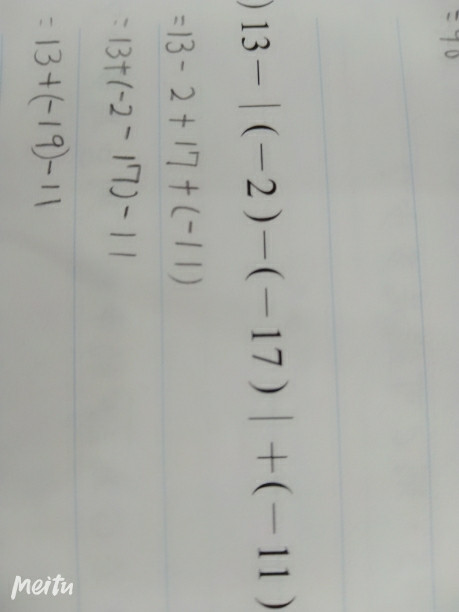 =90
) 13－|(－2)－(－17)|＋(－11)
=13-2+17+(-11)
=13+(-2-17)-11
=13+(-19)-11
Meitu